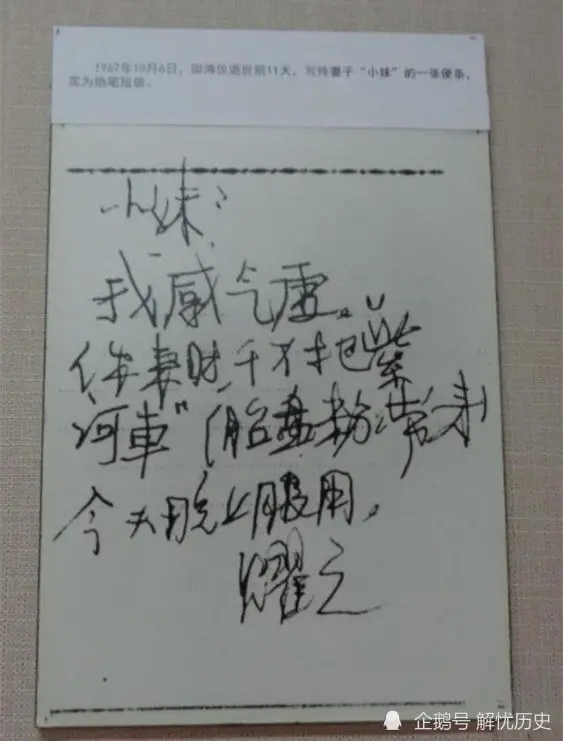 1967年10月6日，御溥仪逝世前11天，写给妻子“小妹”的一张便条，
实为绝笔短信。
小妹：
我感气虚。
你来时千万把“紫
河車”（胎盘粉）带来
今天晚上服用。
耀之
企鹅号 解忧历史